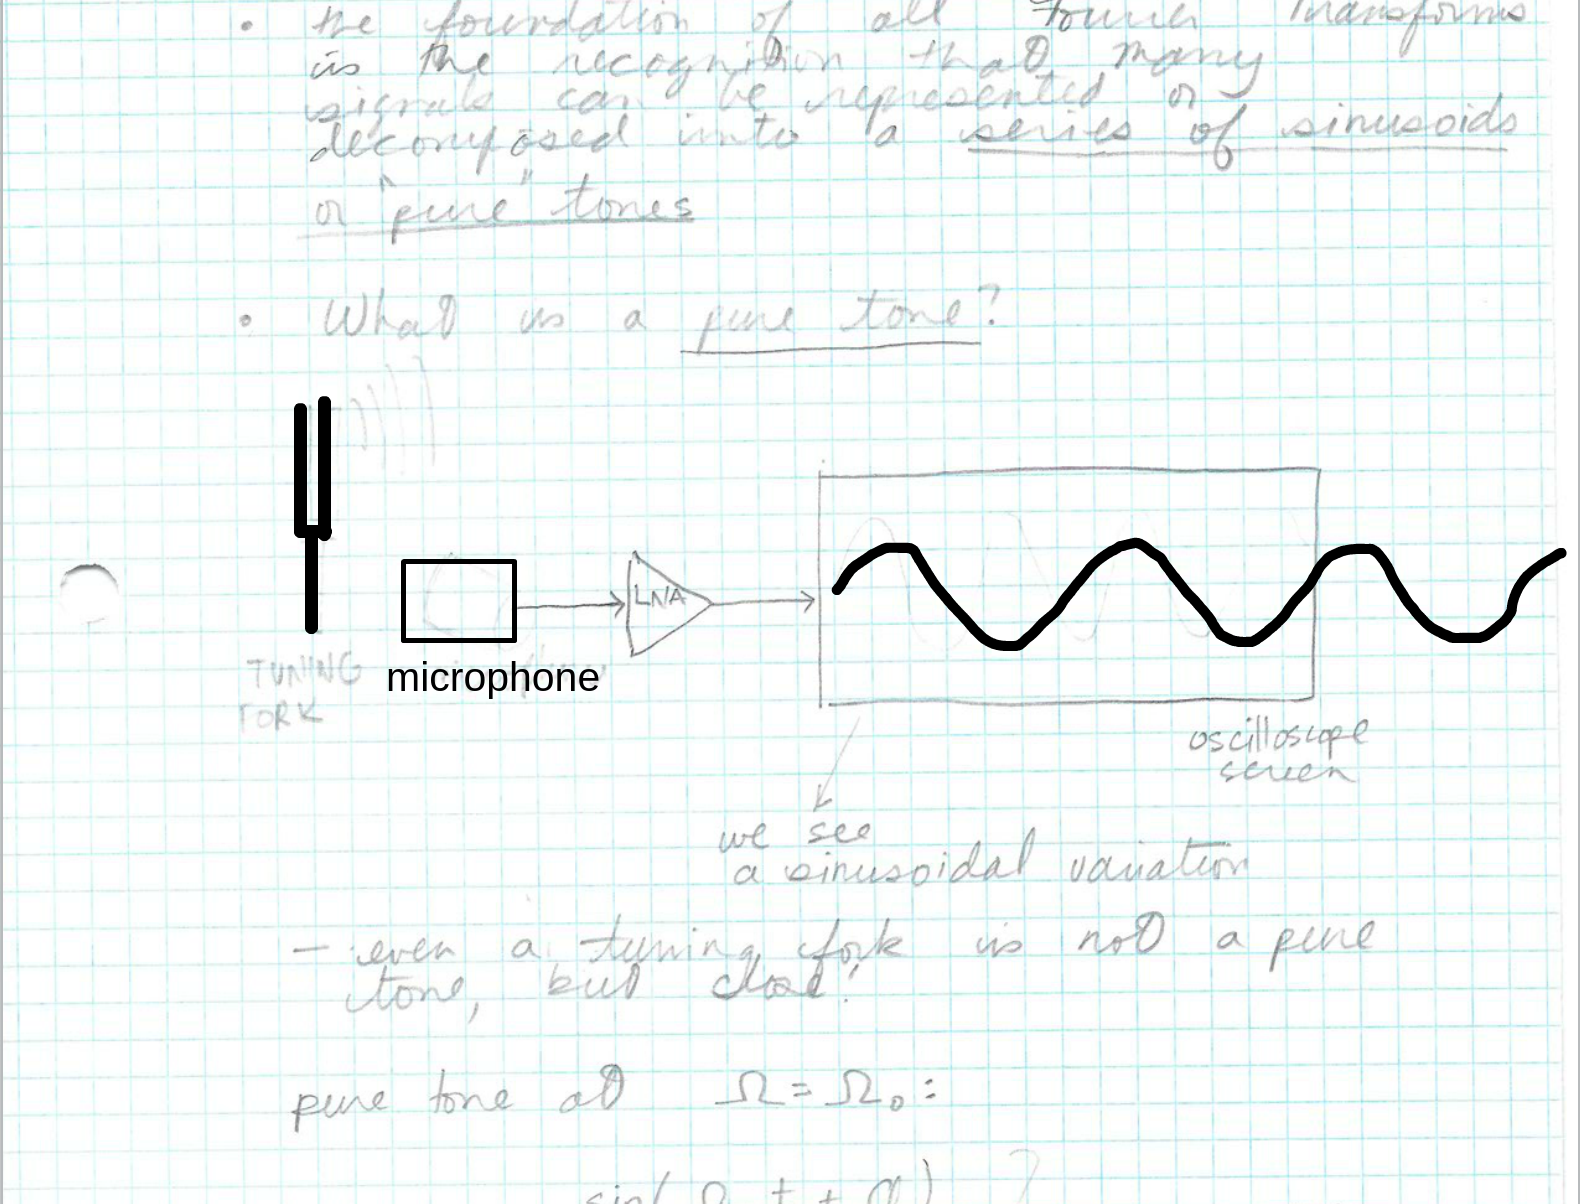 • the foundation of all Fourier Transforms
is the recognition that many
signals can be represented or
decomposed into a series of sinusoids
or "pure" tones
• What is a pure tone?
LNA
TUNING
FORK
microphone
oscilloscope
screen
we see
a sinusoidal variation
— even a tuning fork is not a pure
tone, but close!
pure tone at Ω = Ω₀:
sin(Ω₀t + φ)